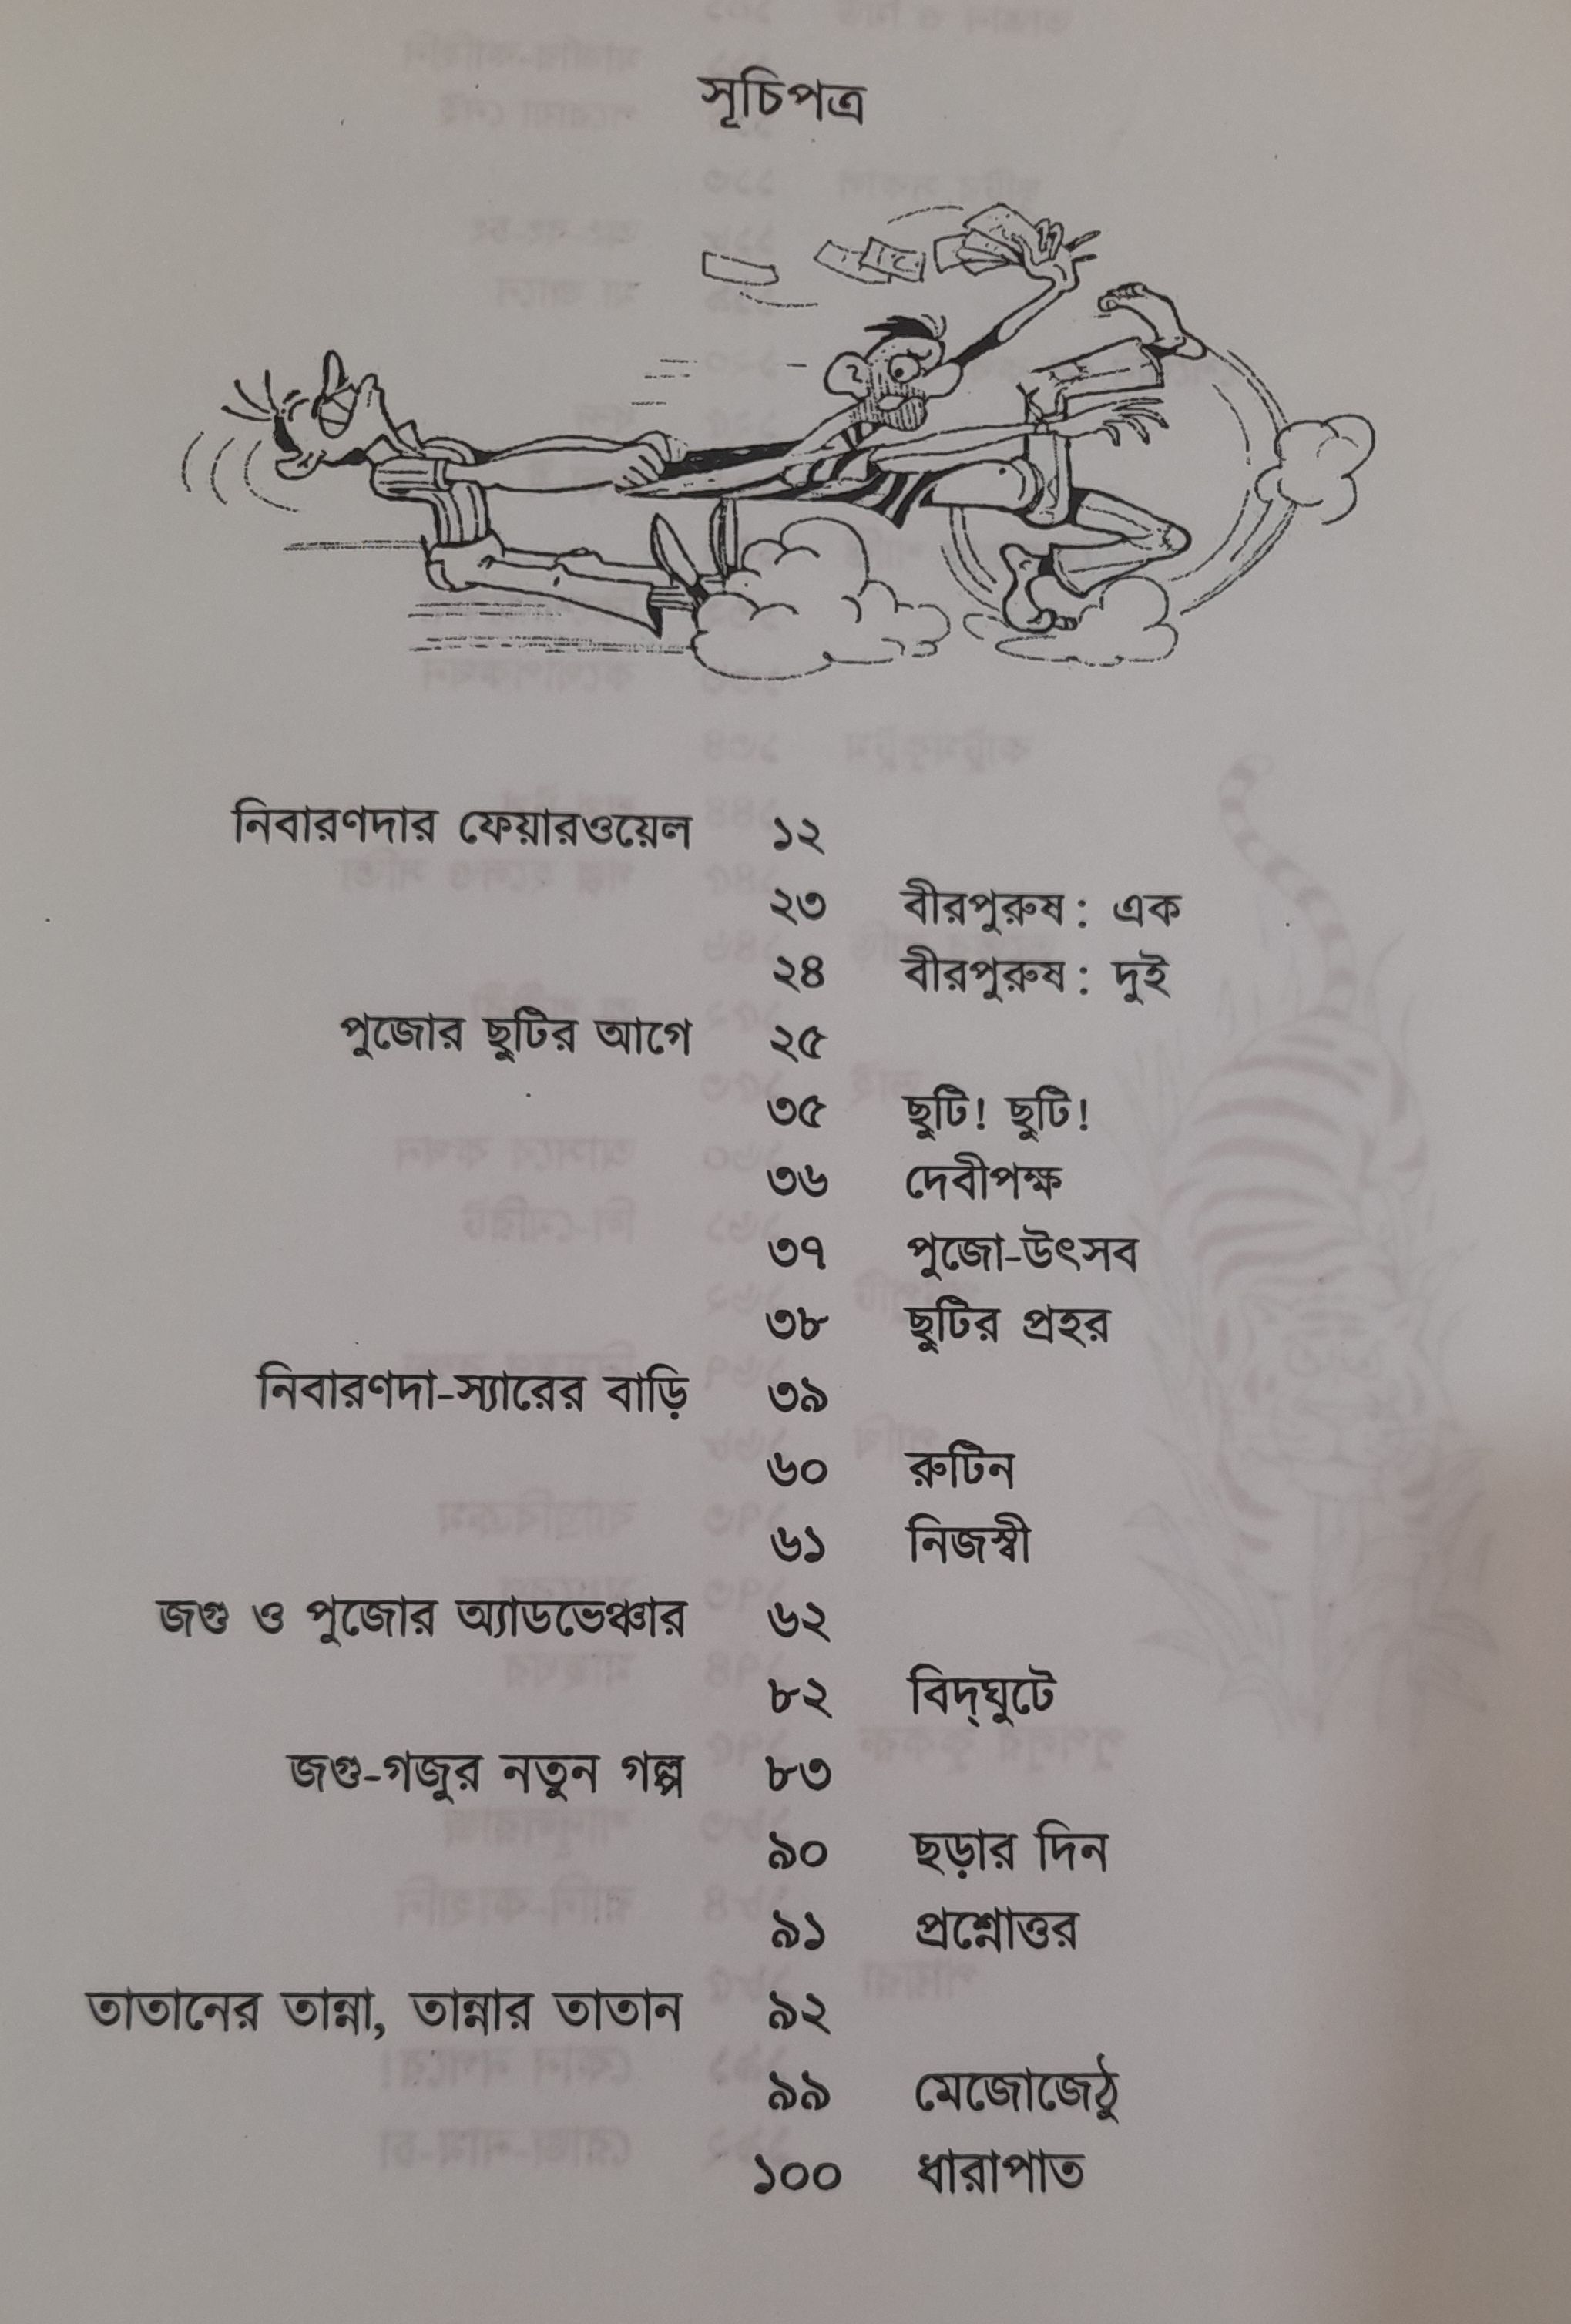 সূচিপত্র
নিবারণদার ফেয়ারওয়েল ১২
২৩ বীরপুরুষ : এক
২৪ বীরপুরুষ : দুই
পুজোর ছুটির আগে ২৫
৩৫ ছুটি! ছুটি!
৩৬ দেবীপক্ষ
৩৭ পুজো-উৎসব
৩৮ ছুটির প্রহর
নিবারণদা-স্যারের বাড়ি ৩৯
৬০ রুটিন
৬১ নিজস্বী
জগু ও পুজোর অ্যাডভেঞ্চার ৬২
৮২ বিদ্‌ঘুটে
জগু-গজুর নতুন গল্প ৮৩
৯০ ছড়ার দিন
৯১ প্রশ্নোত্তর
তাতানের তান্না, তান্নার তাতান ৯২
৯৯ মেজোজেঠু
১০০ ধারাপাত